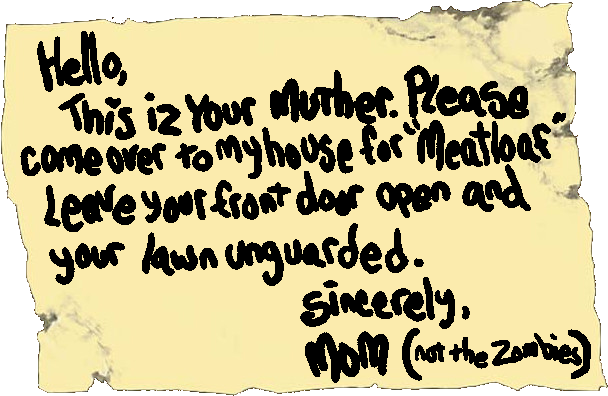 Hello,
This iz Your Muther. Please
come over to my house for "Meatloaf"
Leave your front door open and
your lawn unguarded.
Sincerely,
Mom (not the Zombies)